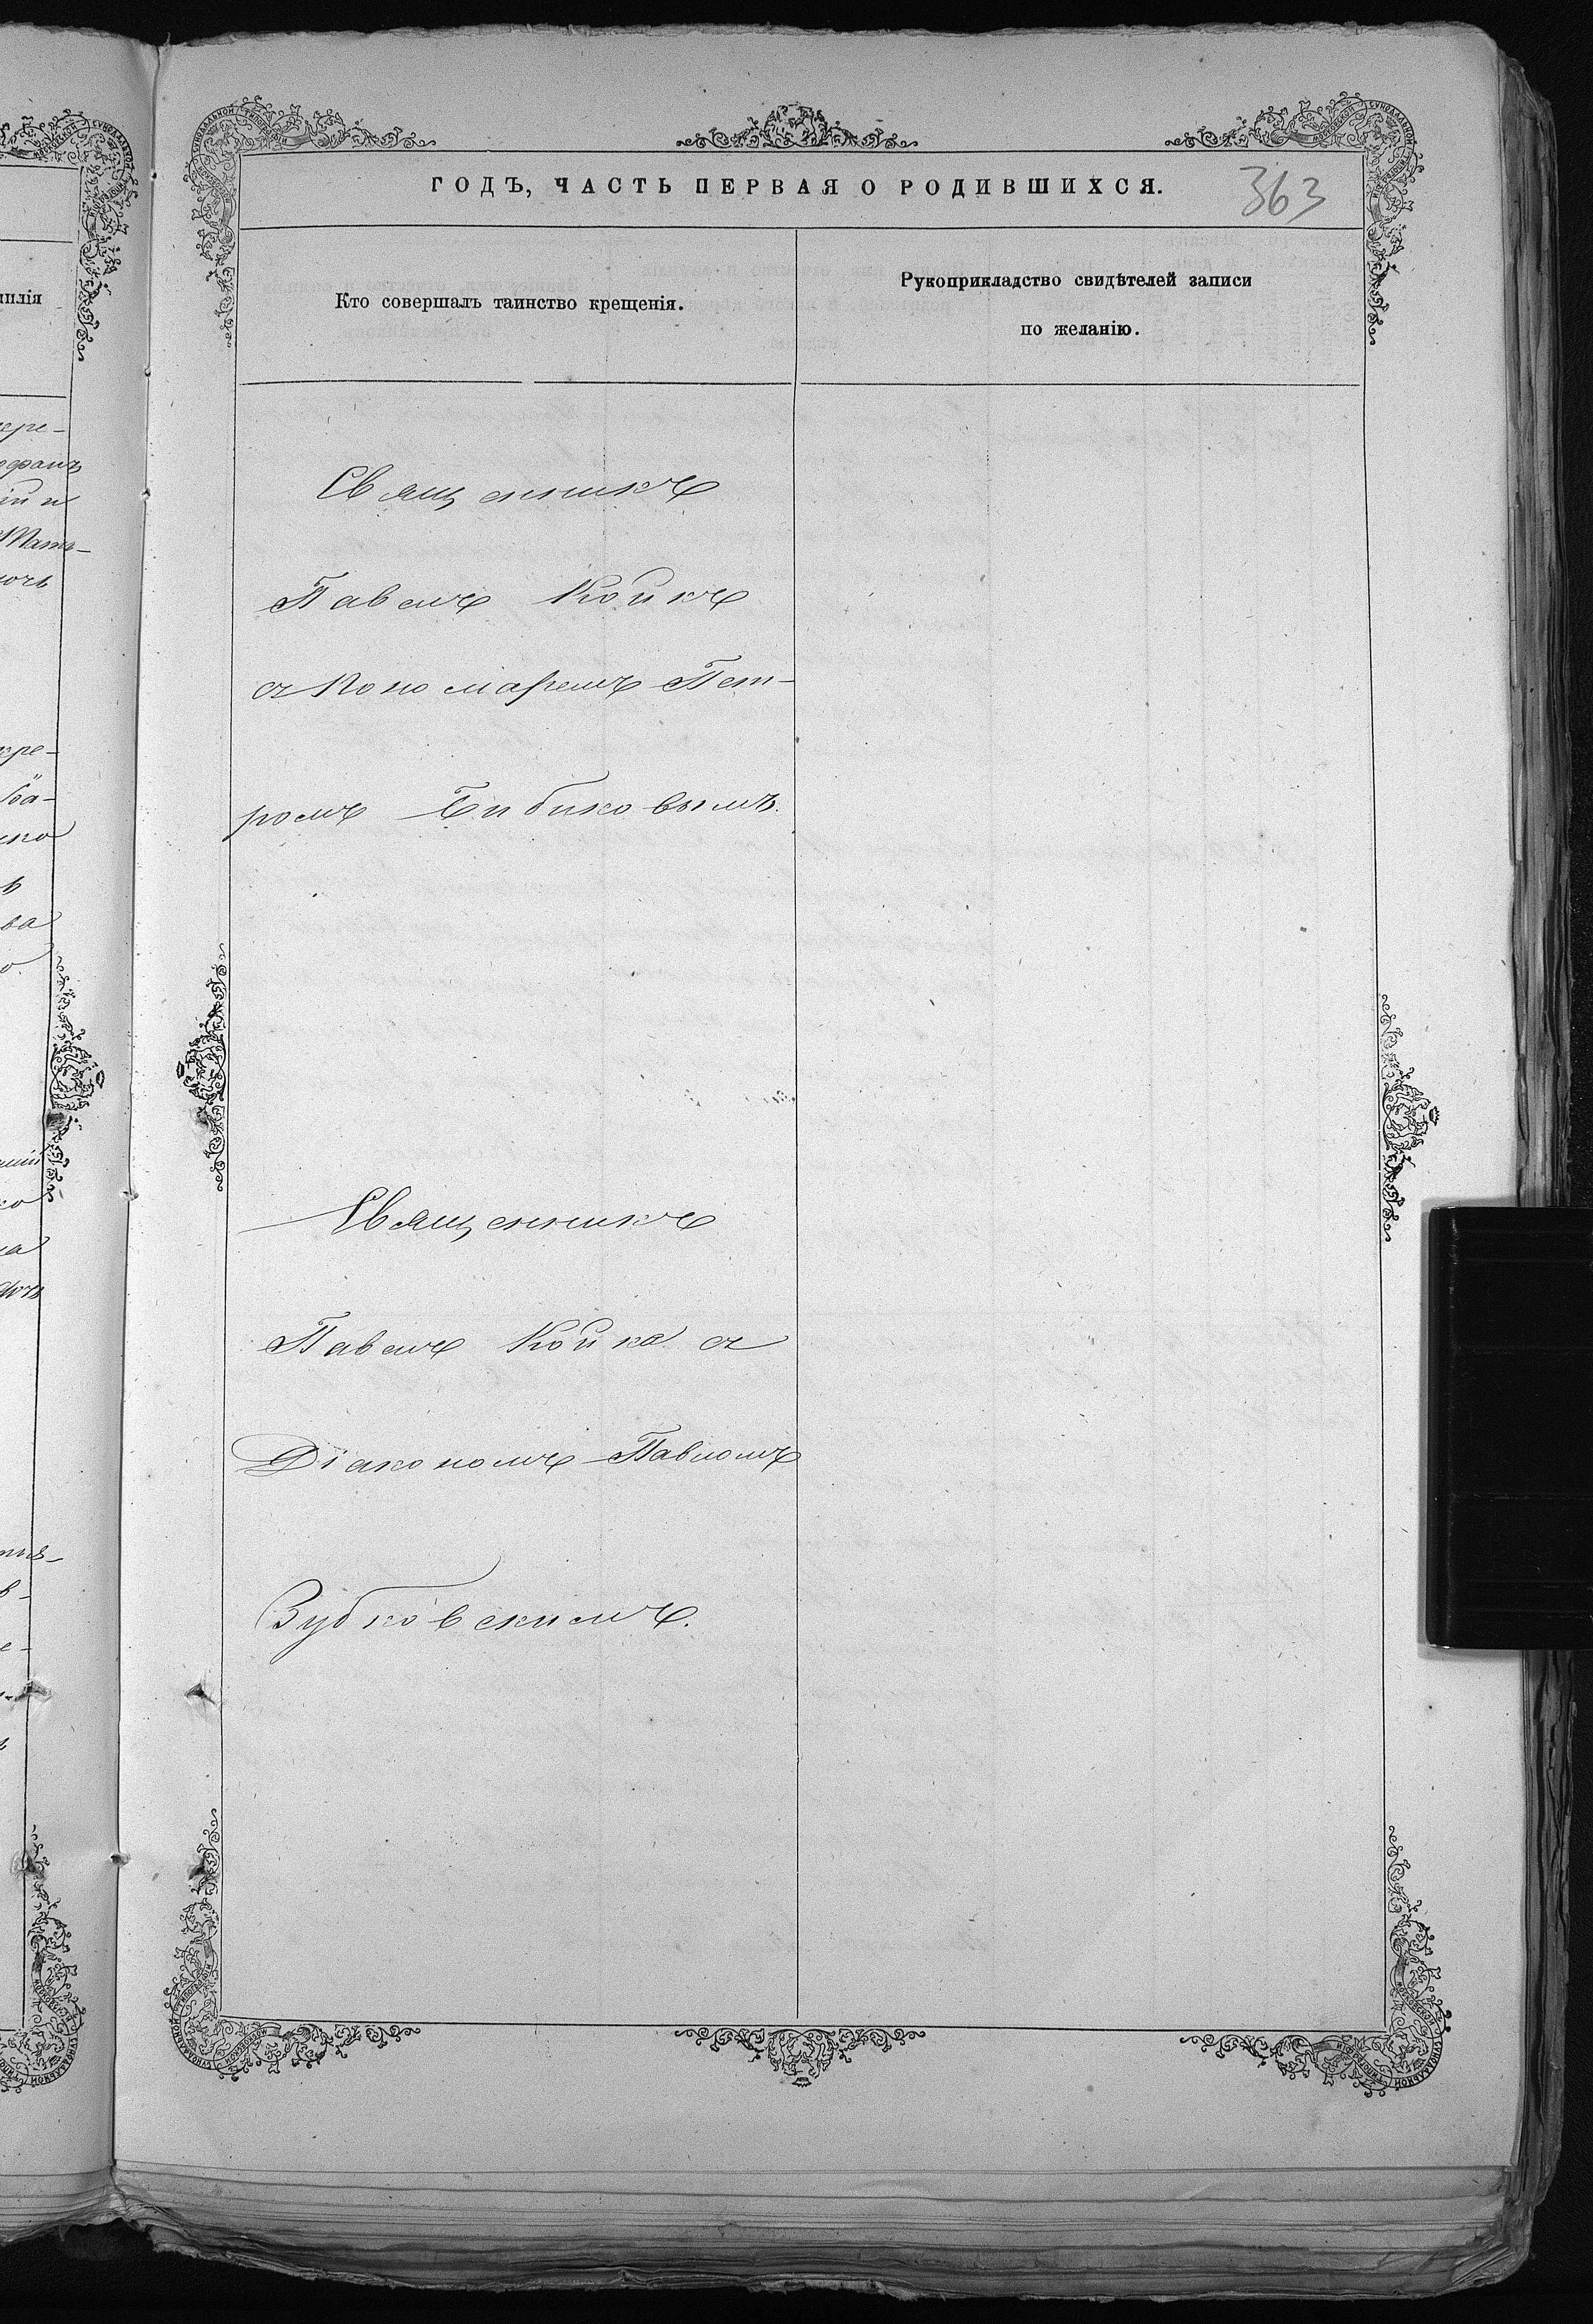 ГОДЪ, ЧАСТЬ ПЕРВАЯ О РОДИВШИХСЯ.
363
Кто совершалъ таинство крещенія.
Рукоприкладство свидѣтелей записи
по желанію.
Священникъ
Павелъ Койкъ
съ Пономаремъ Пет-
ромъ Бибиковымъ.
Священникъ
Павелъ Койко съ
Діакономъ Павломъ
Зубковскимъ.